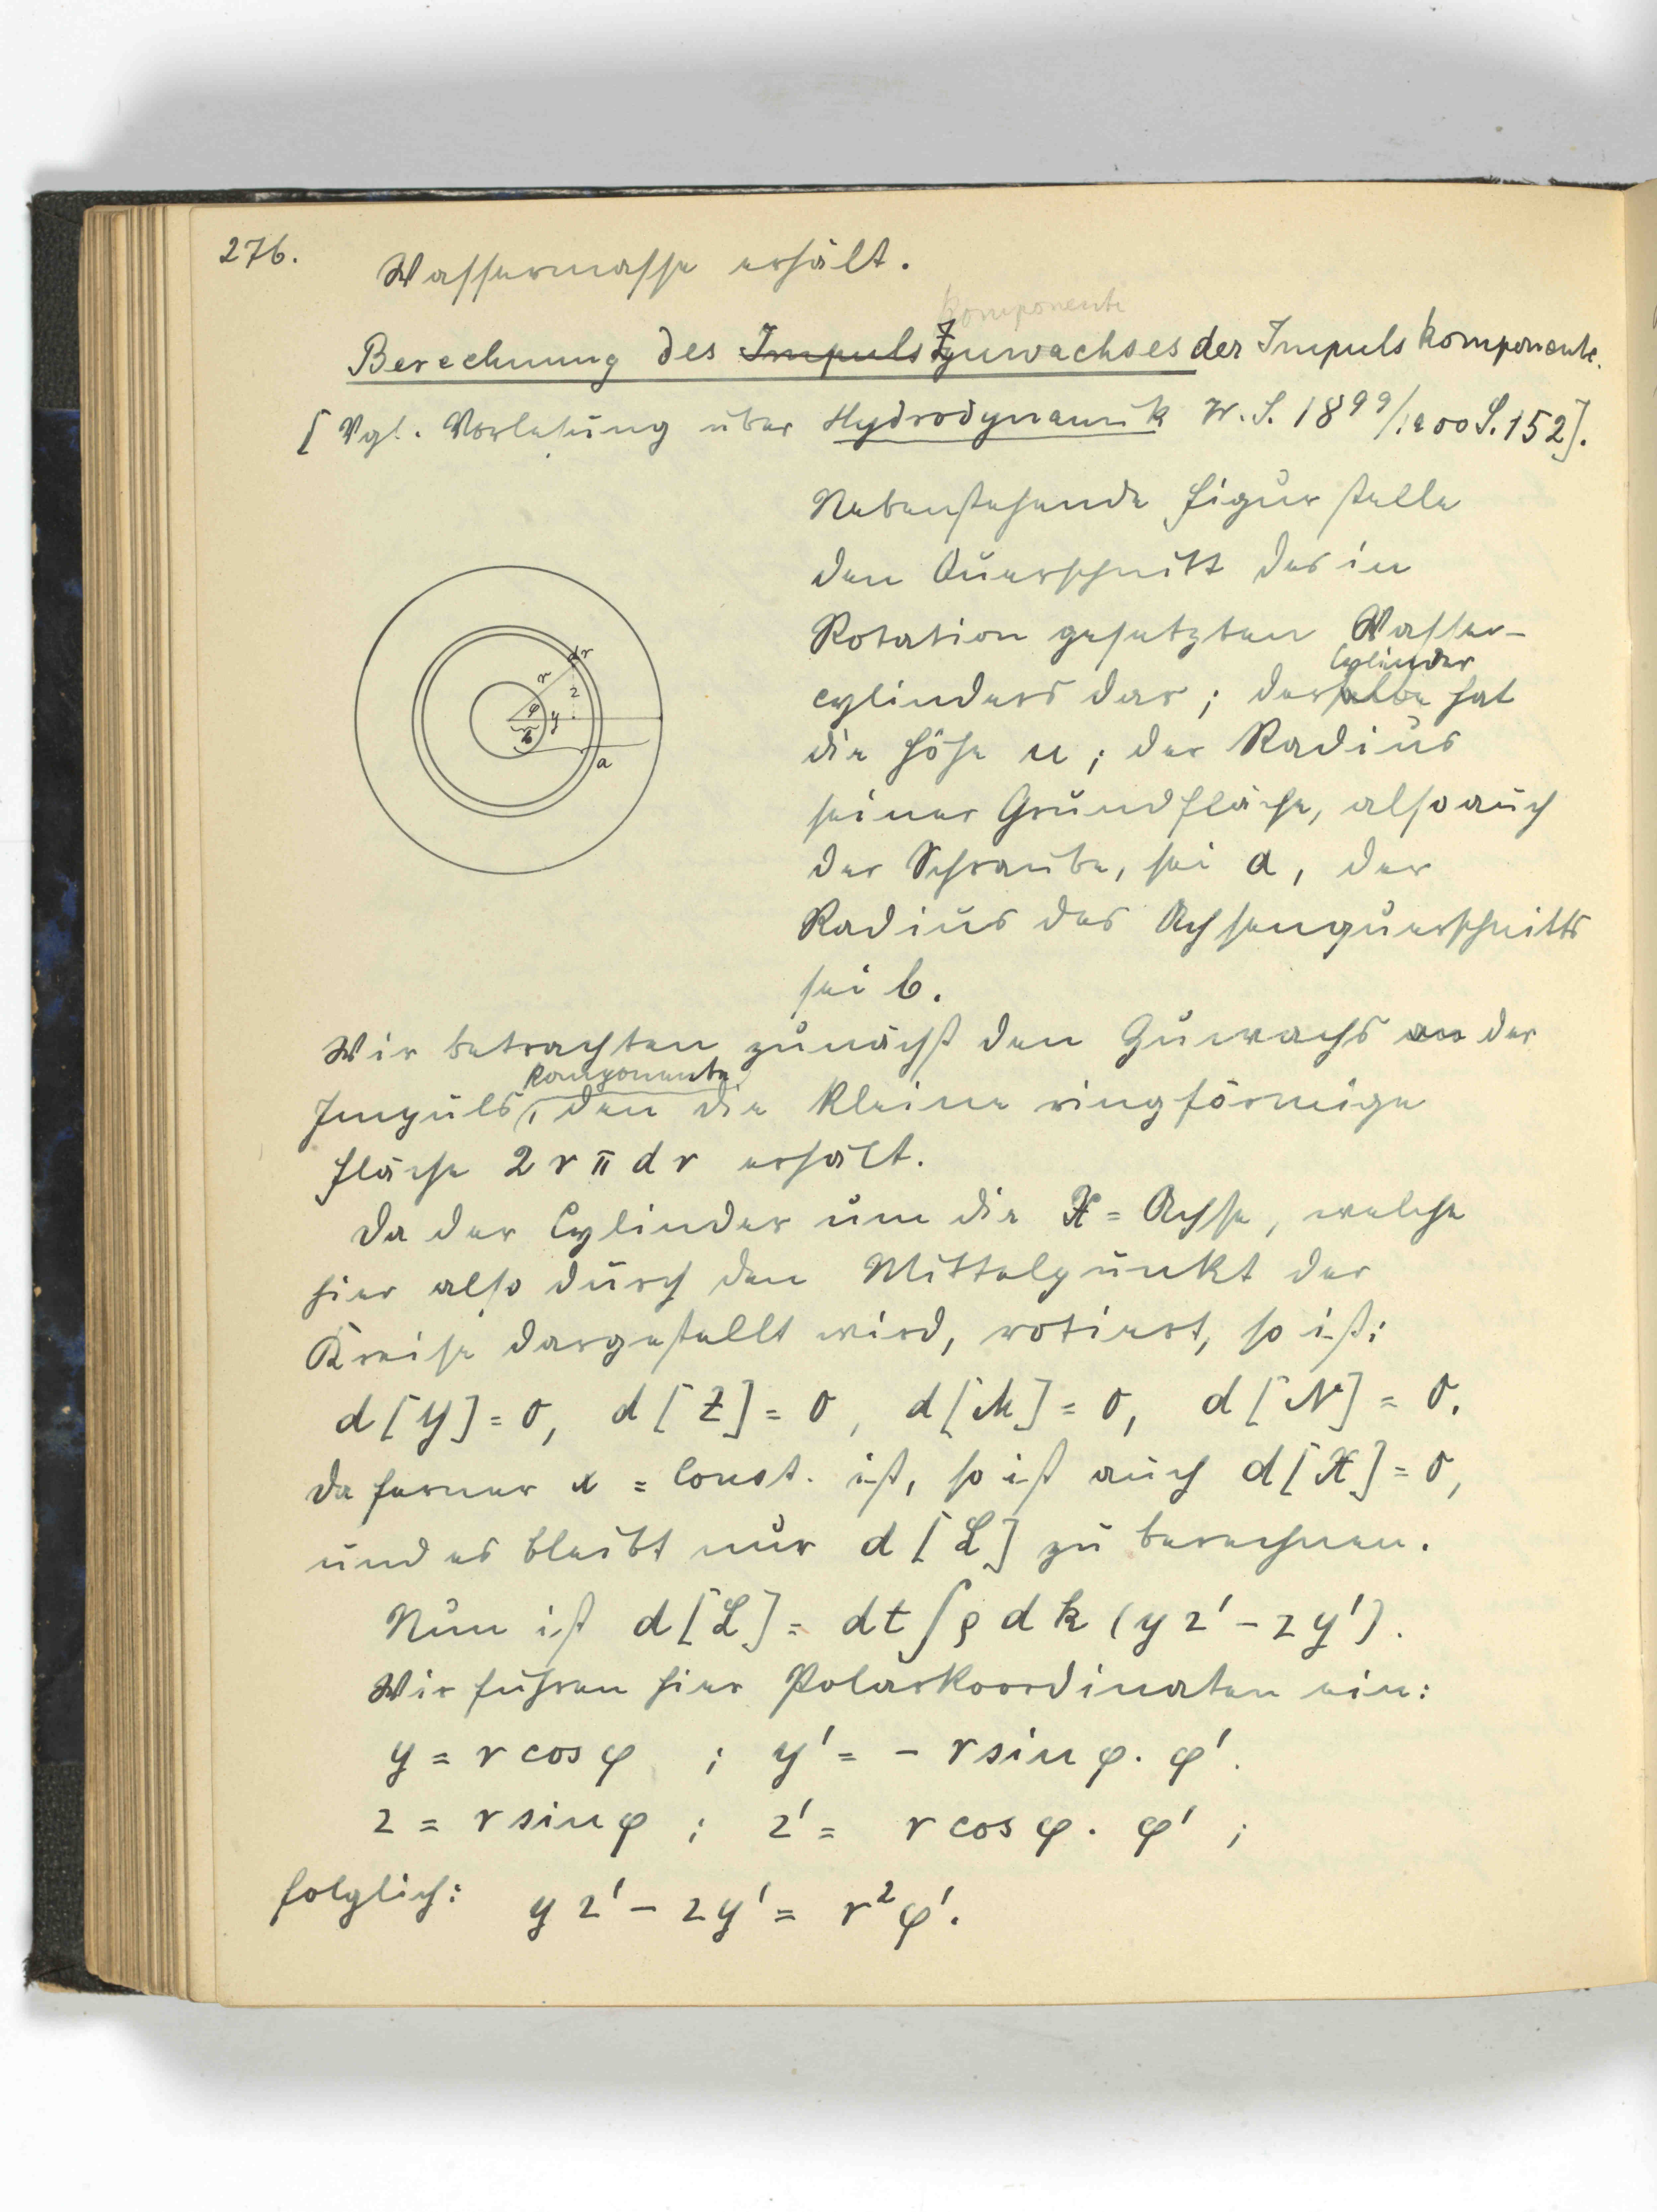 276.
Wassermasse erhält.
Komponente
Berechnung des Impuls Zuwachses der Impulskomponente.
[Vgl. Vorlesung über Hydrodynamik W.S. 1899/1900 S. 152].
Nebenstehende Figur stelle
den Querschnitt des in
Rotation gesetzten Wasser-
cylinders dar; der Cylinder hat
die Höhe u; der Radius
seiner Grundfläche, also auch
der Schraube, sei a, der
Radius des Achsenquerschnitts
sei b.
dr
r
z
φ
y
b
a
Wir betrachten zunächst den Zuwachs der
Impulskomponente, den die kleine ringförmige
Fläche 2 r π d r erhält.
Da der Cylinder um die X = Achse, welche
hier also durch den Mittelpunkt der
Kreise dargestellt wird, rotiert, so ist:
d[Y] = 0, d[Z] = 0, d[M] = 0, d[N] = 0.
Da ferner x = Const. ist, so ist auch d[X] = 0,
und es bleibt nur d[L] zu berechnen.
Nun ist d[L] = dt ∫ ρ d k (y z' - z y').
Wir führen hier Polarkoordinaten ein:
y = r cos φ ; y' = - r sin φ . φ'.
z = r sin φ ; z' = r cos φ . φ' ;
folglich: y z' - z y' = r² φ'.